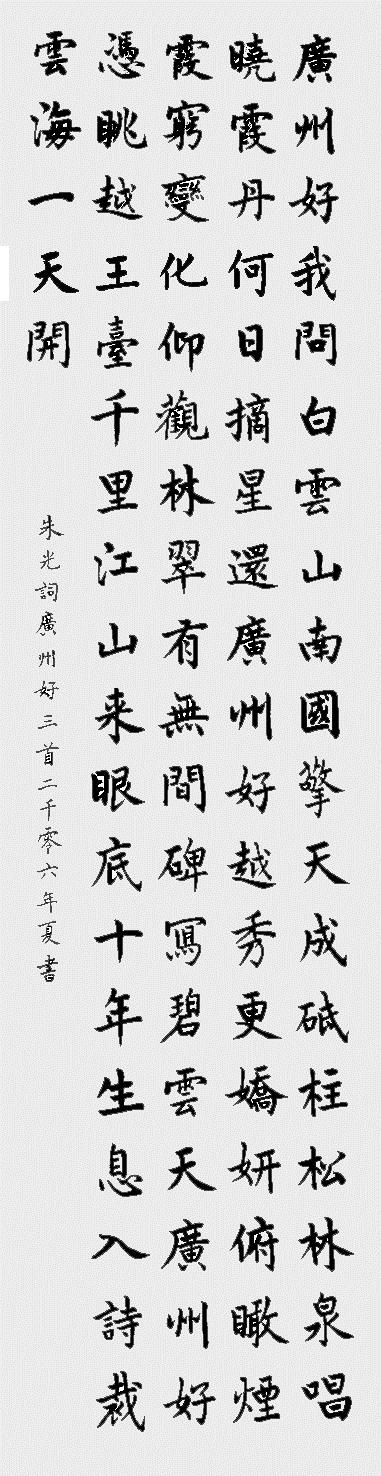 廣州好我問白雲山南國擎天成砥柱松林泉唱
曉霞丹何日摘星還廣州好越秀更嬌妍俯瞰煙
霞窮變化仰觀林翠有無間碑寫碧雲天廣州好
憑眺越王臺千里江山来眼底十年生息入詩裁
雲海一天開
朱光詞廣州好三首二千零六年夏書